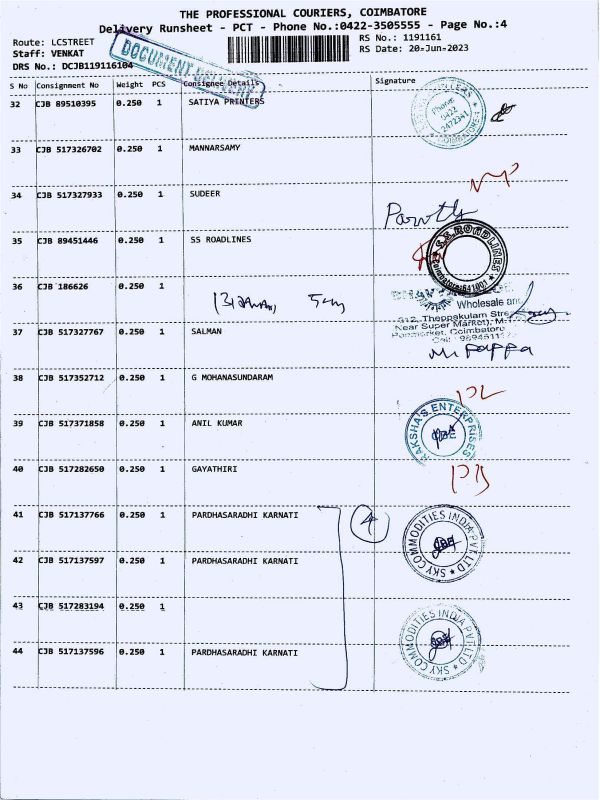 THE PROFESSIONAL COURIERS, COIMBATORE
Delivery Runsheet - PCT - Phone No.:0422-3505555 - Page No.:4
Route: LCSTREET RS No.: 1191161
Staff: VENKAT RS Date: 20-Jun-2023
DRS No.: DCJB119116104
DOCUMENT
S No Consignment No Weight PCS Consignee Details Signature
32 CJB 89510395 0.250 1 SATIYA PRINTERS
Phone:
0422
2472341
COIMBATORE
33 CJB 517326702 0.250 1 MANNARSAMY
34 CJB 517327933 0.250 1 SUDEER
35 CJB 89451446 0.250 1 SS ROADLINES
S.S. ROADLINES
Coimbatore-641001
36 CJB 186626 0.250 1
Wholesale
312, Theppakulam Stre
Near Super Market), M.T.
Coimbatore
Cell:
37 CJB 517327767 0.250 1 SALMAN
38 CJB 517352712 0.250 1 G MOHANASUNDARAM
39 CJB 517371858 0.250 1 ANIL KUMAR
RAKSHA'S ENTERPRISES
CBE
40 CJB 517282650 0.250 1 GAYATHIRI
41 CJB 517137766 0.250 1 PARDHASARADHI KARNATI
4
SKY COMMODITIES INDIA PVT LTD
CBE
42 CJB 517137597 0.250 1 PARDHASARADHI KARNATI
43 CJB 517283194 0.250 1
SKY COMMODITIES INDIA PVT LTD
44 CJB 517137596 0.250 1 PARDHASARADHI KARNATI